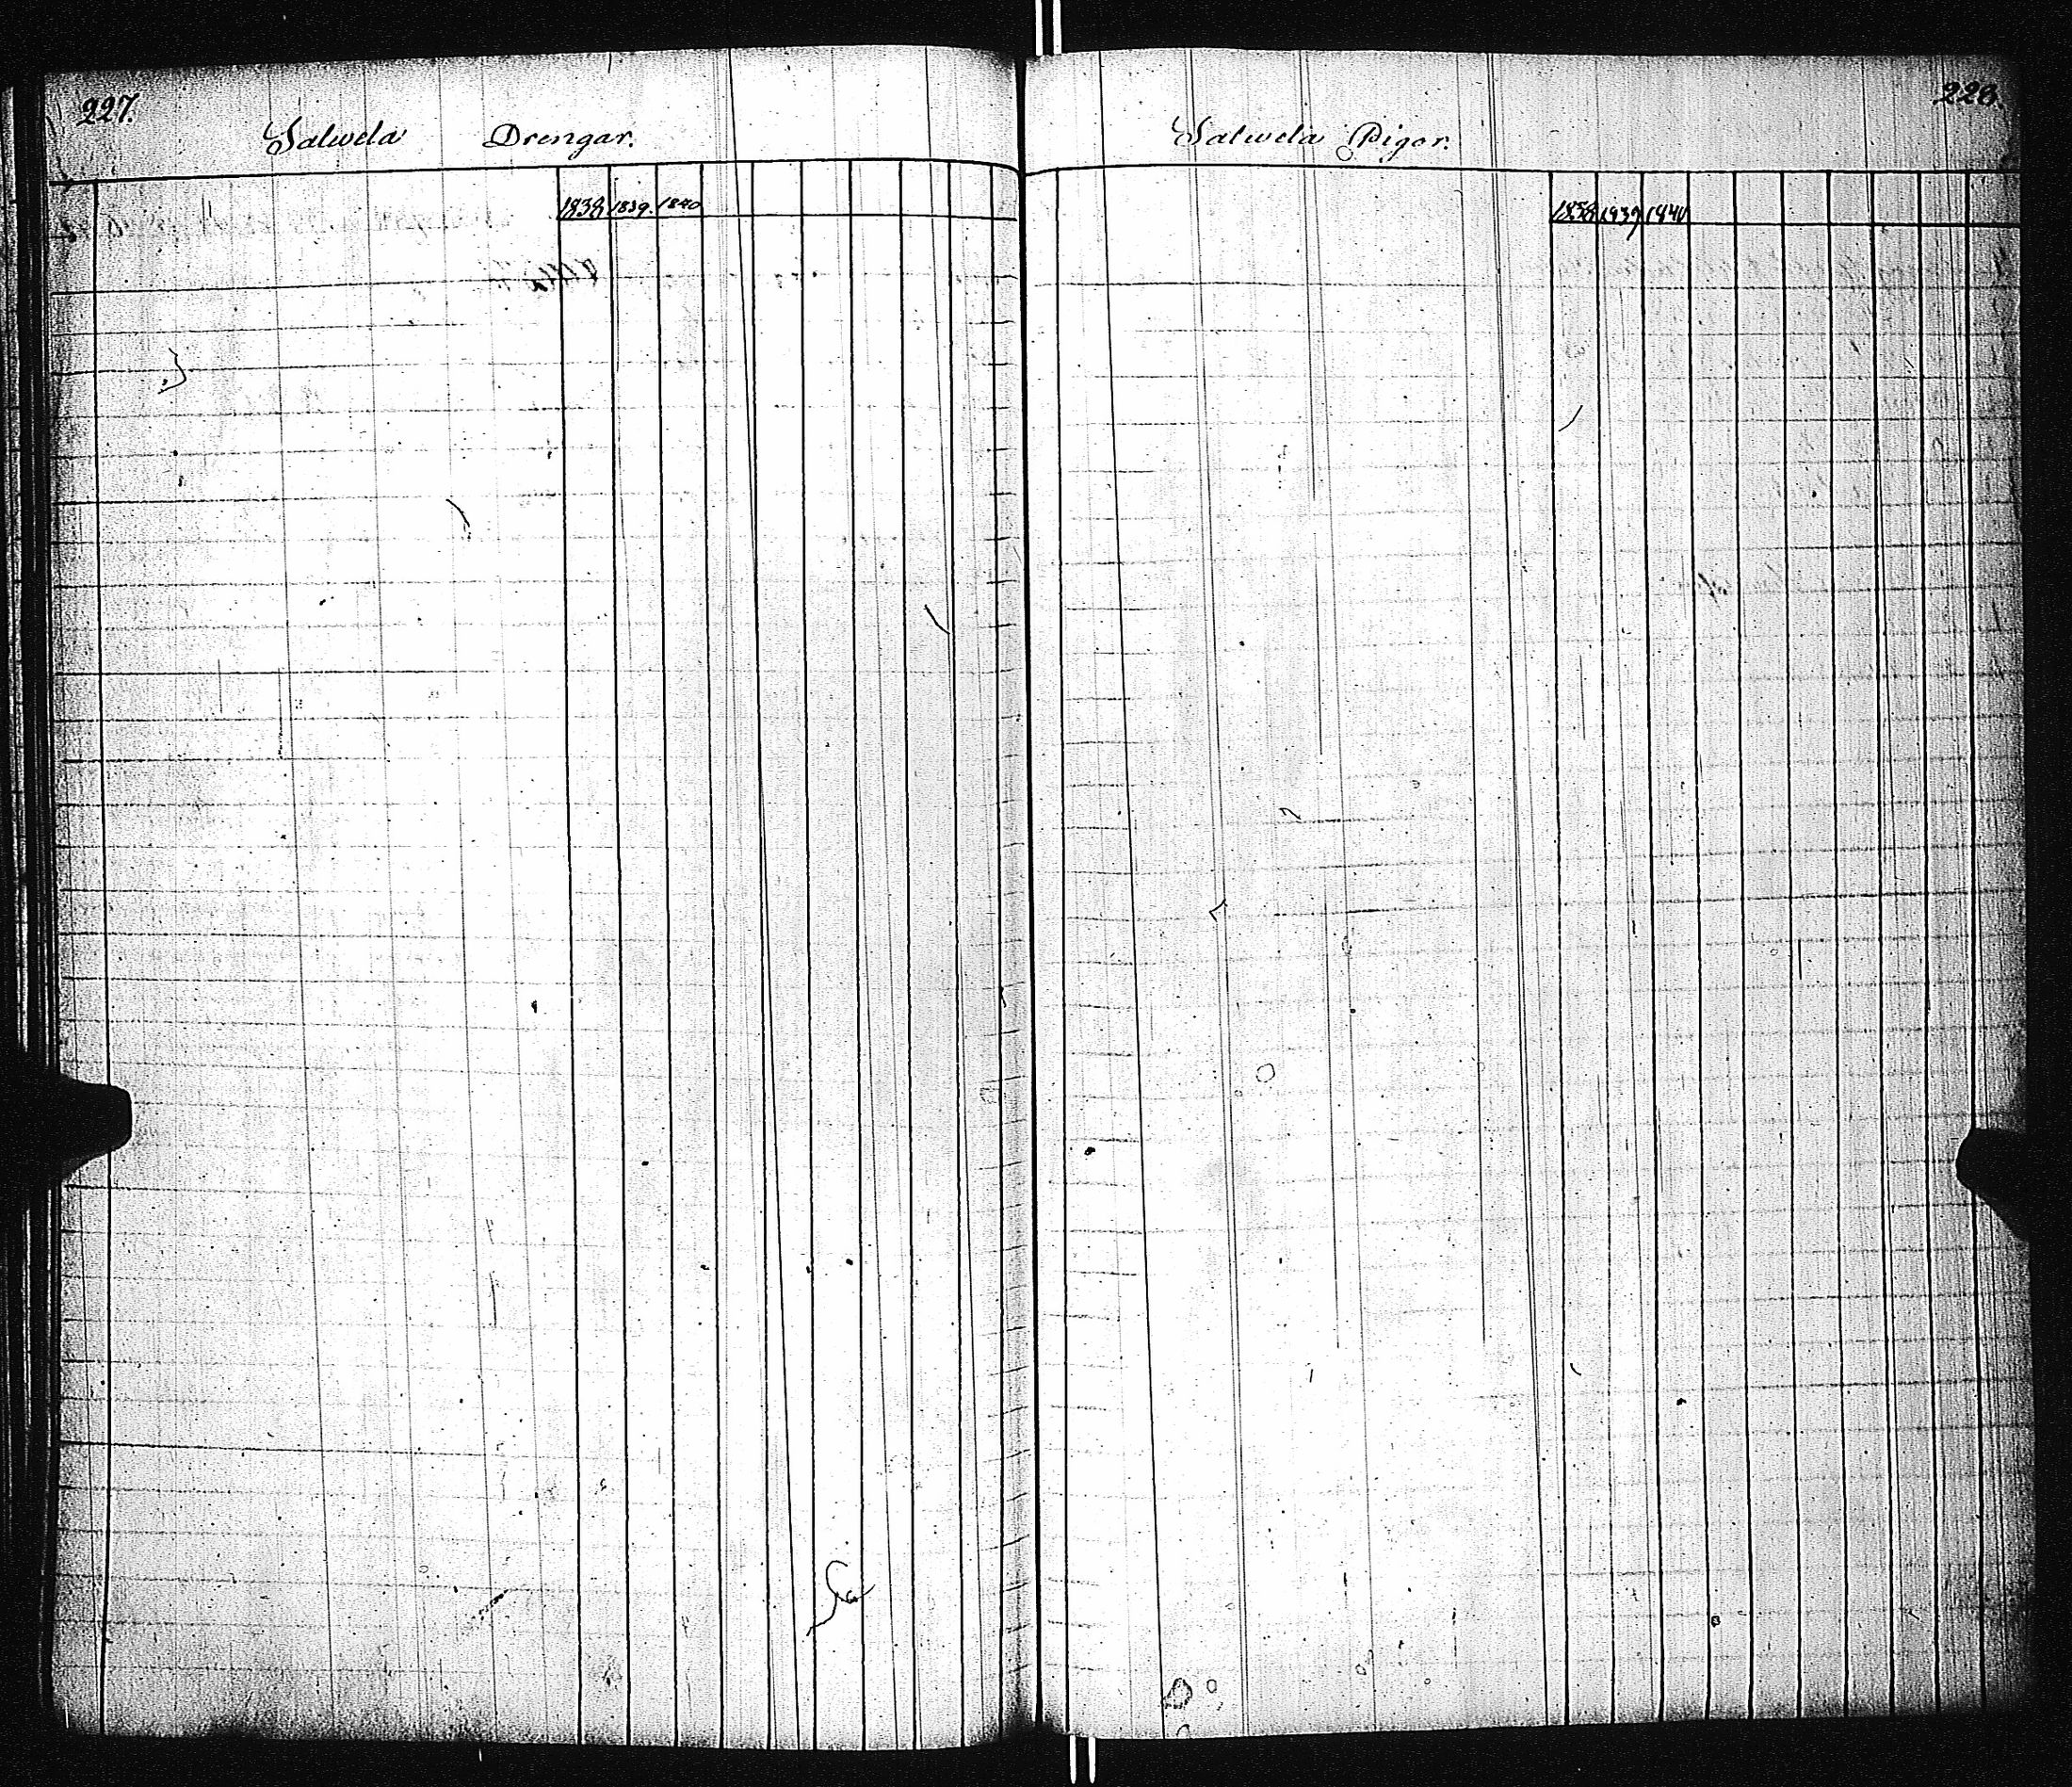 227.
Salwela Drengar.
1838 1839. 1840
228.
Salwela Pigor.
1838 1939 1840